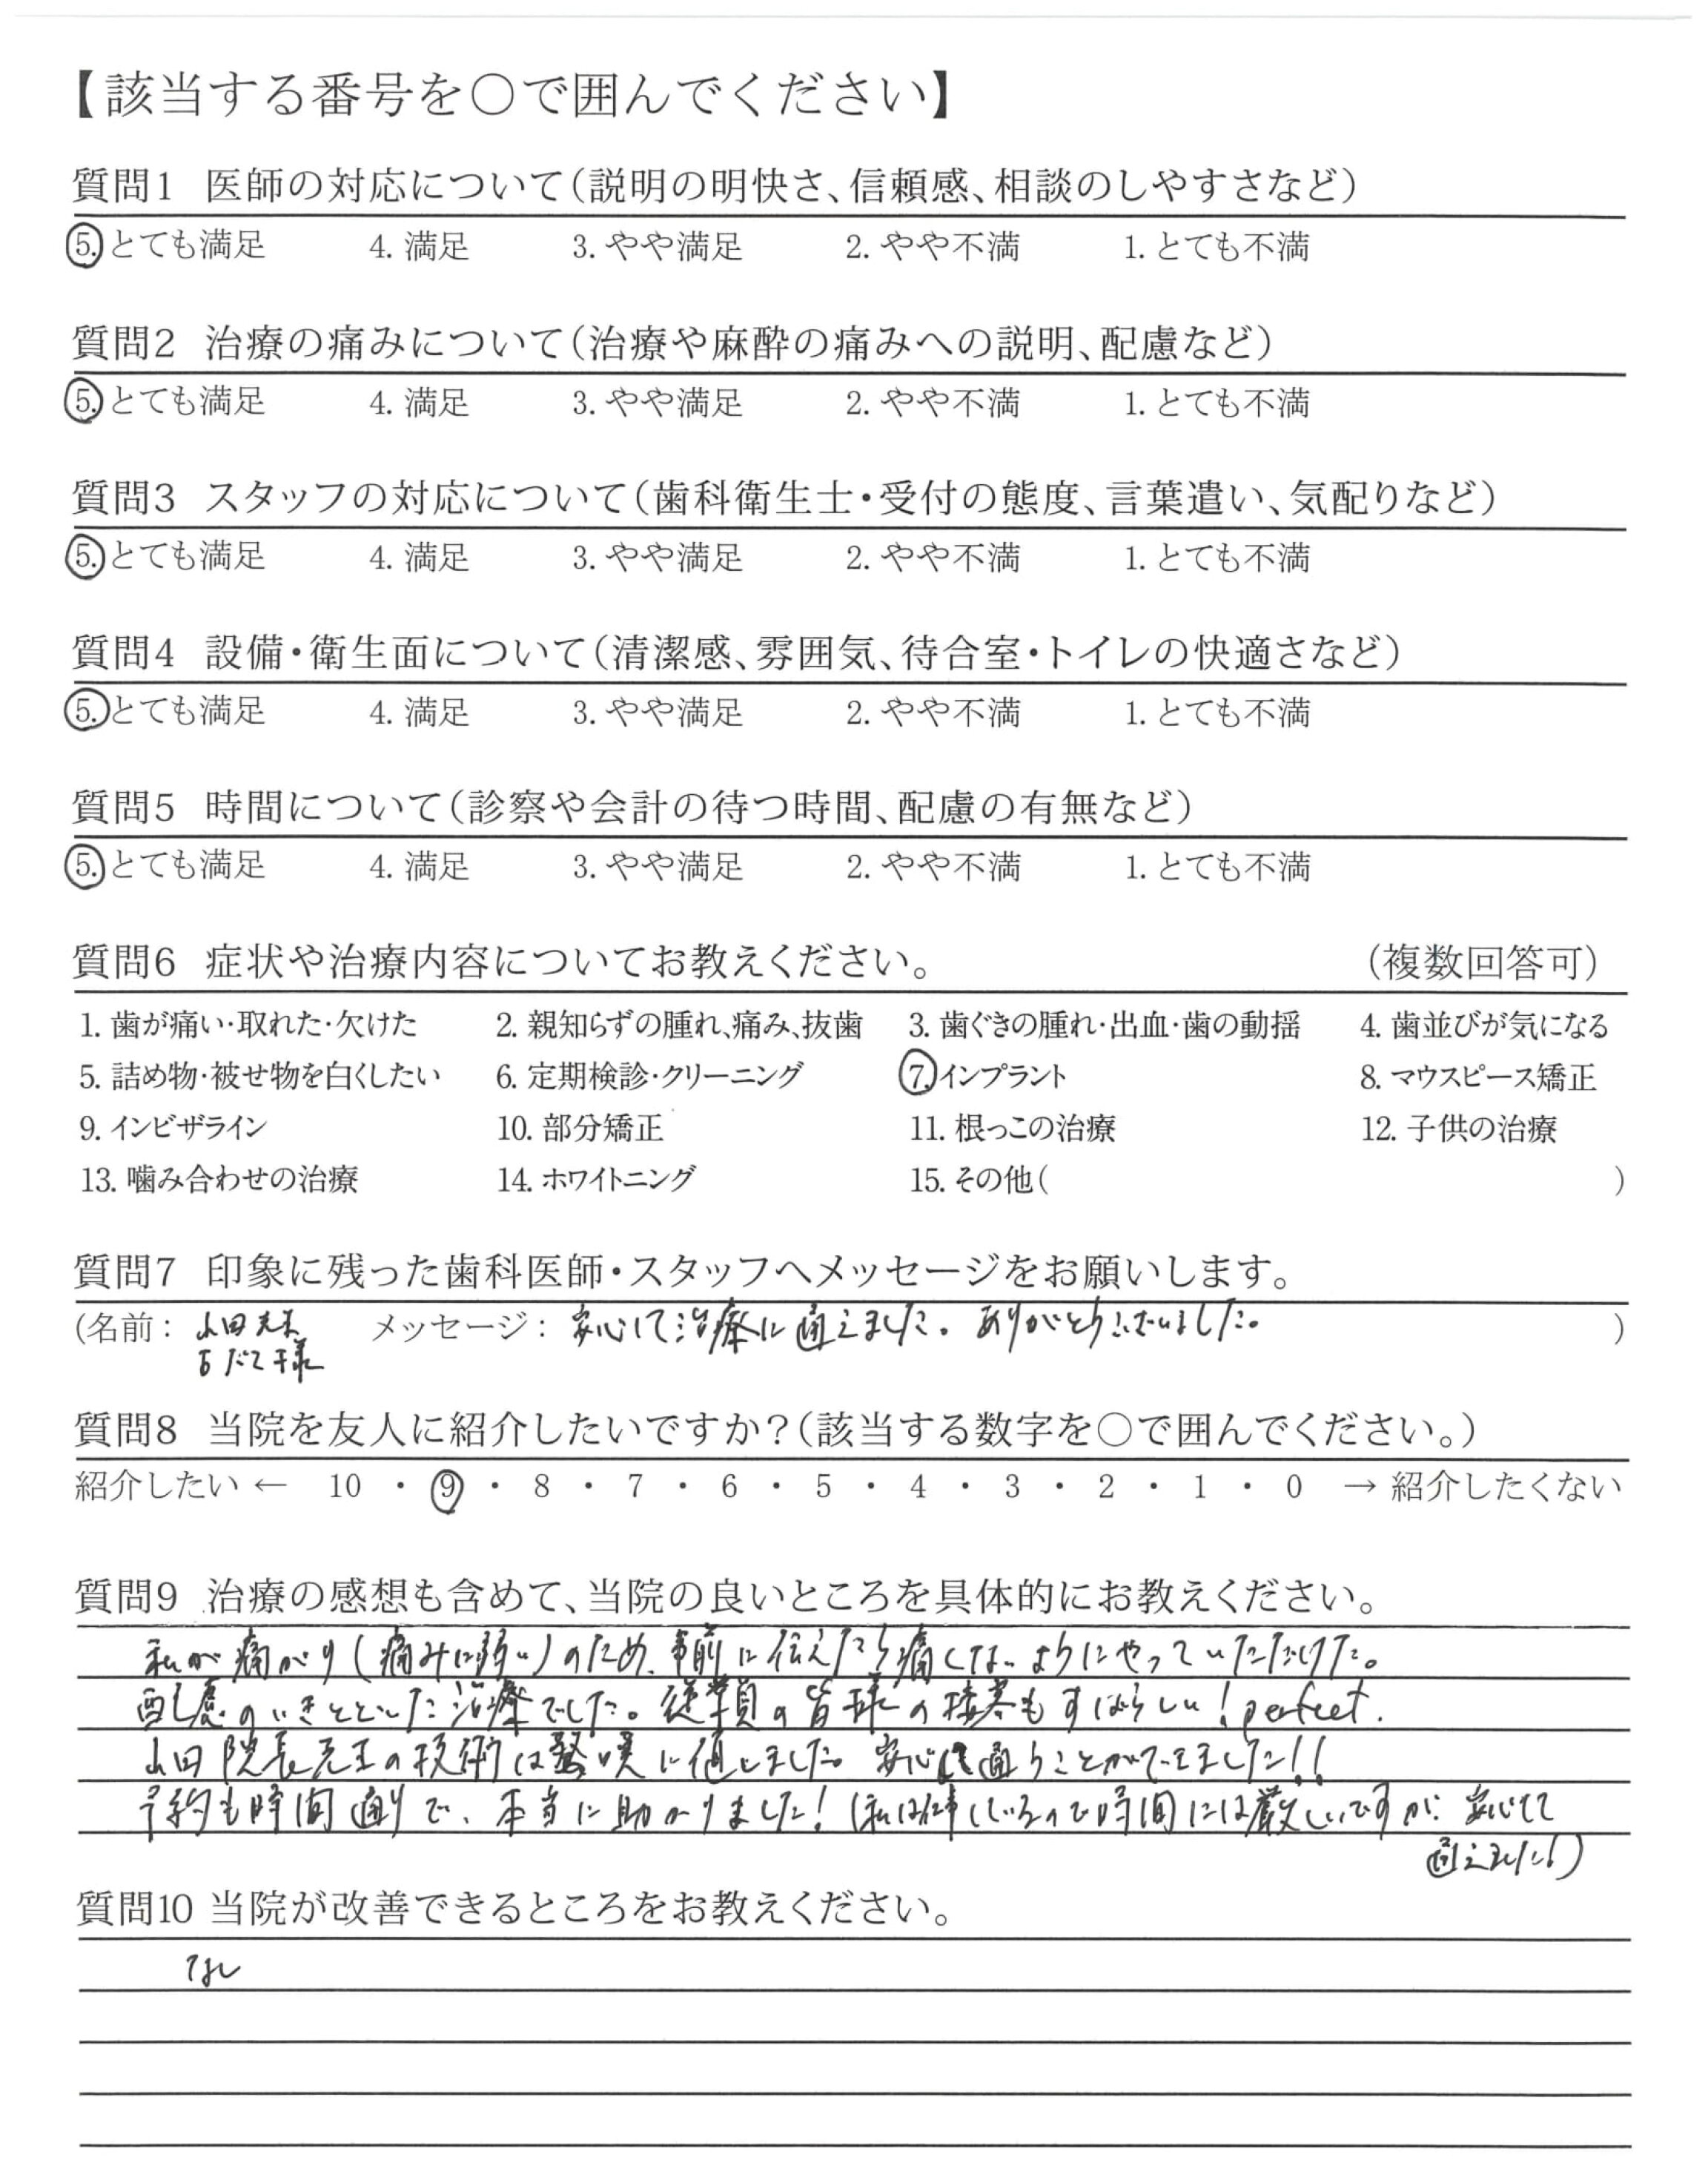 【該当する番号を〇で囲んでください】
質問1 医師の対応について(説明の明快さ、信頼感、相談のしやすさなど)
5. とても満足 4. 満足 3. やや満足 2. やや不満 1. とても不満
質問2 治療の痛みについて(治療や麻酔の痛みへの説明、配慮など)
5. とても満足 4. 満足 3. やや満足 2. やや不満 1. とても不満
質問3 スタッフの対応について(歯科衛生士・受付の態度、言葉遣い、気配りなど)
5. とても満足 4. 満足 3. やや満足 2. やや不満 1. とても不満
質問4 設備・衛生面について(清潔感、雰囲気、待合室・トイレの快適さなど)
5. とても満足 4. 満足 3. やや満足 2. やや不満 1. とても不満
質問5 時間について(診察や会計の待つ時間、配慮の有無など)
5. とても満足 4. 満足 3. やや満足 2. やや不満 1. とても不満
質問6 症状や治療内容についてお教えください。 (複数回答可)
1. 歯が痛い・取れた・欠けた 2. 親知らずの腫れ、痛み、抜歯 3. 歯ぐきの腫れ・出血・歯の動揺 4. 歯並びが気になる
5. 詰め物・被せ物を白くしたい 6. 定期検診・クリーニング 7. インプラント 8. マウスピース矯正
9. インビザライン 10. 部分矯正 11. 根っこの治療 12. 子供の治療
13. 噛み合わせの治療 14. ホワイトニング 15. その他( )
質問7 印象に残った歯科医師・スタッフへメッセージをお願いします。
(名前: 山田先生 メッセージ: 安心して治療に通えました。ありがとうございました。 )
様
質問8 当院を友人に紹介したいですか?(該当する数字を〇で囲んでください。)
紹介したい ← 10 ・ 9 ・ 8 ・ 7 ・ 6 ・ 5 ・ 4 ・ 3 ・ 2 ・ 1 ・ 0 → 紹介したくない
質問9 治療の感想も含めて、当院の良いところを具体的にお教えください。
私が痛がり(痛みに弱い)のため、事前に伝えたら痛くないようにやっていただけた。
配慮のいきとどいた治療でした。従業員の皆様の接客もすばらしい!perfect.
山田院長先生の技術は驚嘆に値しました。安心して通うことができました!!
予約も時間通りで、本当に助かりました!(私は仕事しているので時間には厳しいですが、安心して
通えました!)
質問10 当院が改善できるところをお教えください。
なし